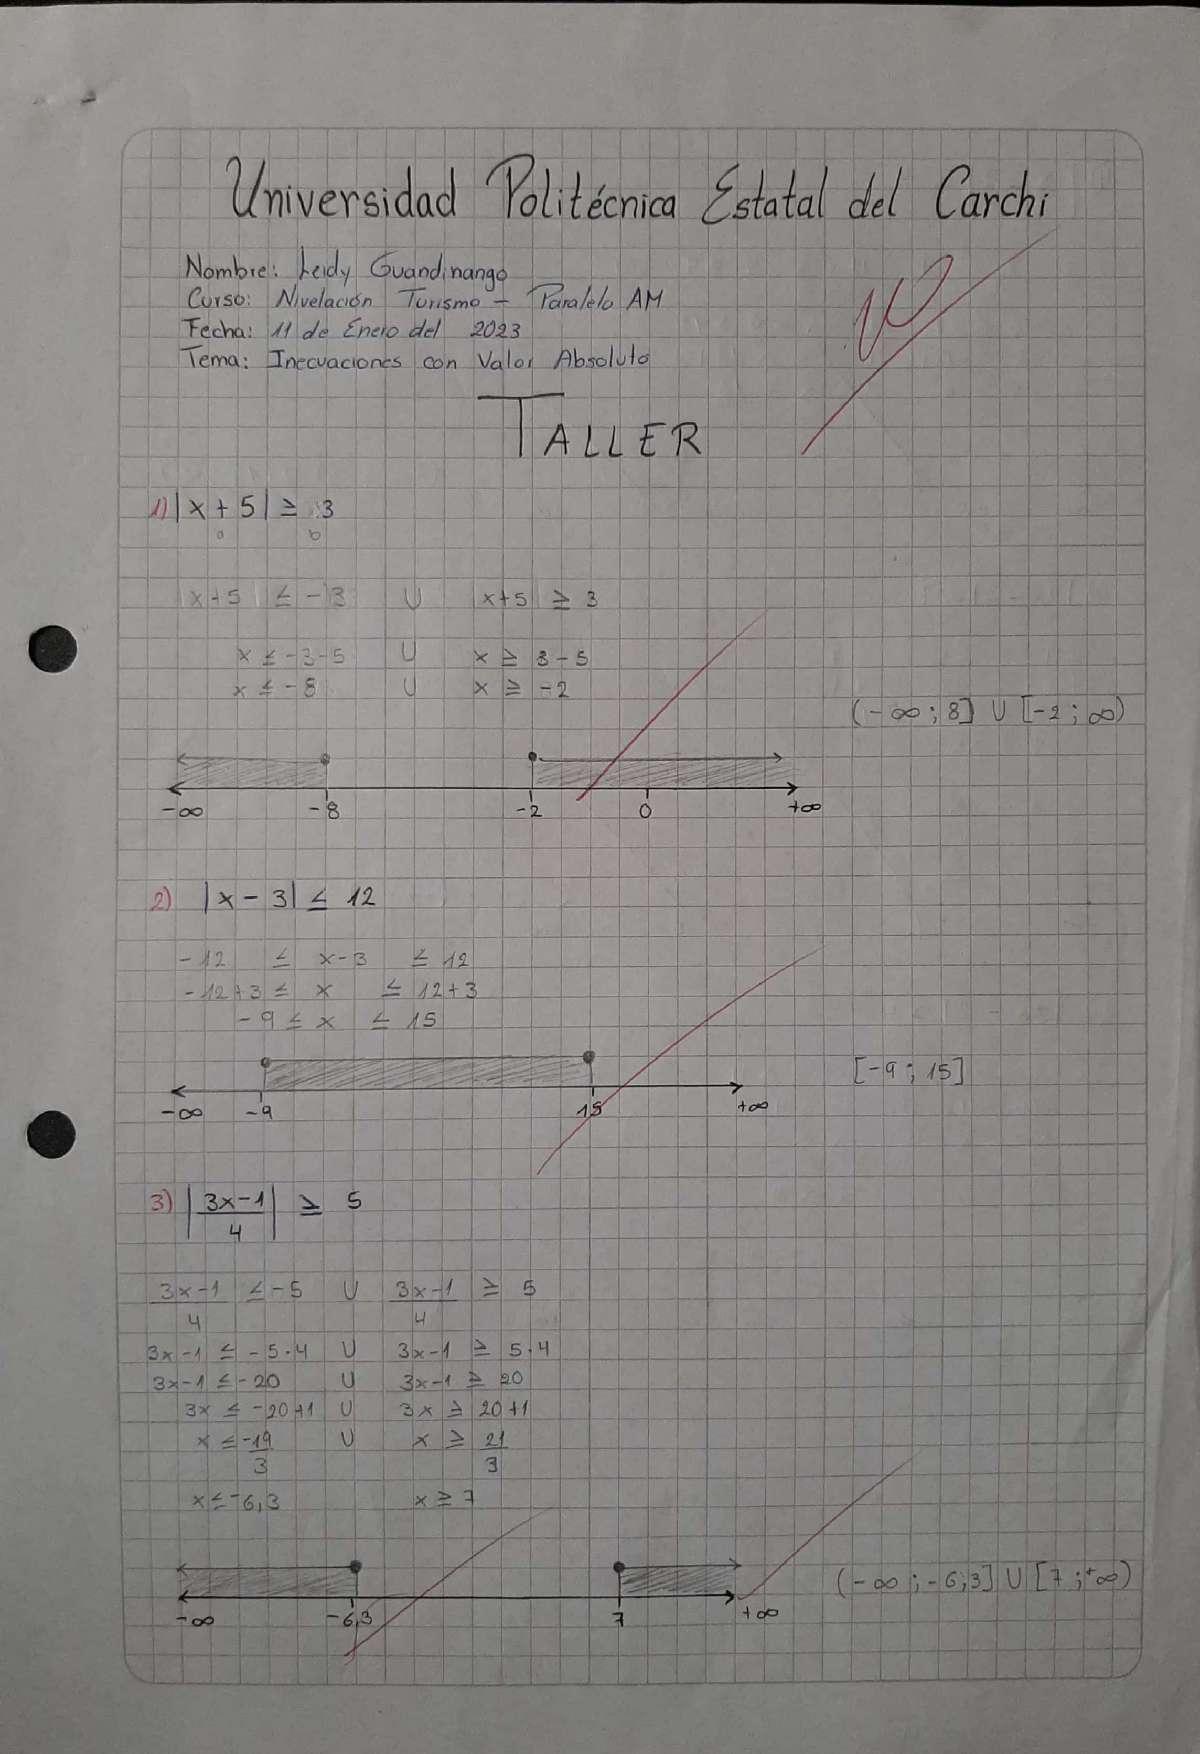 Universidad Politécnica Estatal del Carchi
Nombre: Leidy Guandinango
Curso: Nivelación Turismo - Paralelo AM
Fecha: 11 de Enero del 2023
Tema: Inecuaciones con Valor Absoluto
10
TALLER
1) |x + 5| ≥ 3
a b
|x+5| ≤ -3 U |x+5| ≥ 3
x ≤ -3-5 U x ≥ 3-5
x ≤ -8 U x ≥ -2
(-∞ ; 8] U [-2 ; ∞)
-∞ -8 -2 0 +∞
2) |x - 3| ≤ 12
-12 ≤ x-3 ≤ 12
-12+3 ≤ x ≤ 12+3
-9 ≤ x ≤ 15
[-9 ; 15]
-∞ -9 15 +∞
3) |3x-1/4| ≥ 5
3x-1/4 ≤ -5 U 3x-1/4 ≥ 5
3x-1 ≤ -5·4 U 3x-1 ≥ 5·4
3x-1 ≤ -20 U 3x-1 ≥ 20
3x ≤ -20+1 U 3x ≥ 20+1
x ≤ -19/3 U x ≥ 21/3
x ≤ -6,3 x ≥ 7
(-∞ ; -6,3] U [7 ; +∞)
-∞ -6,3 7 +∞